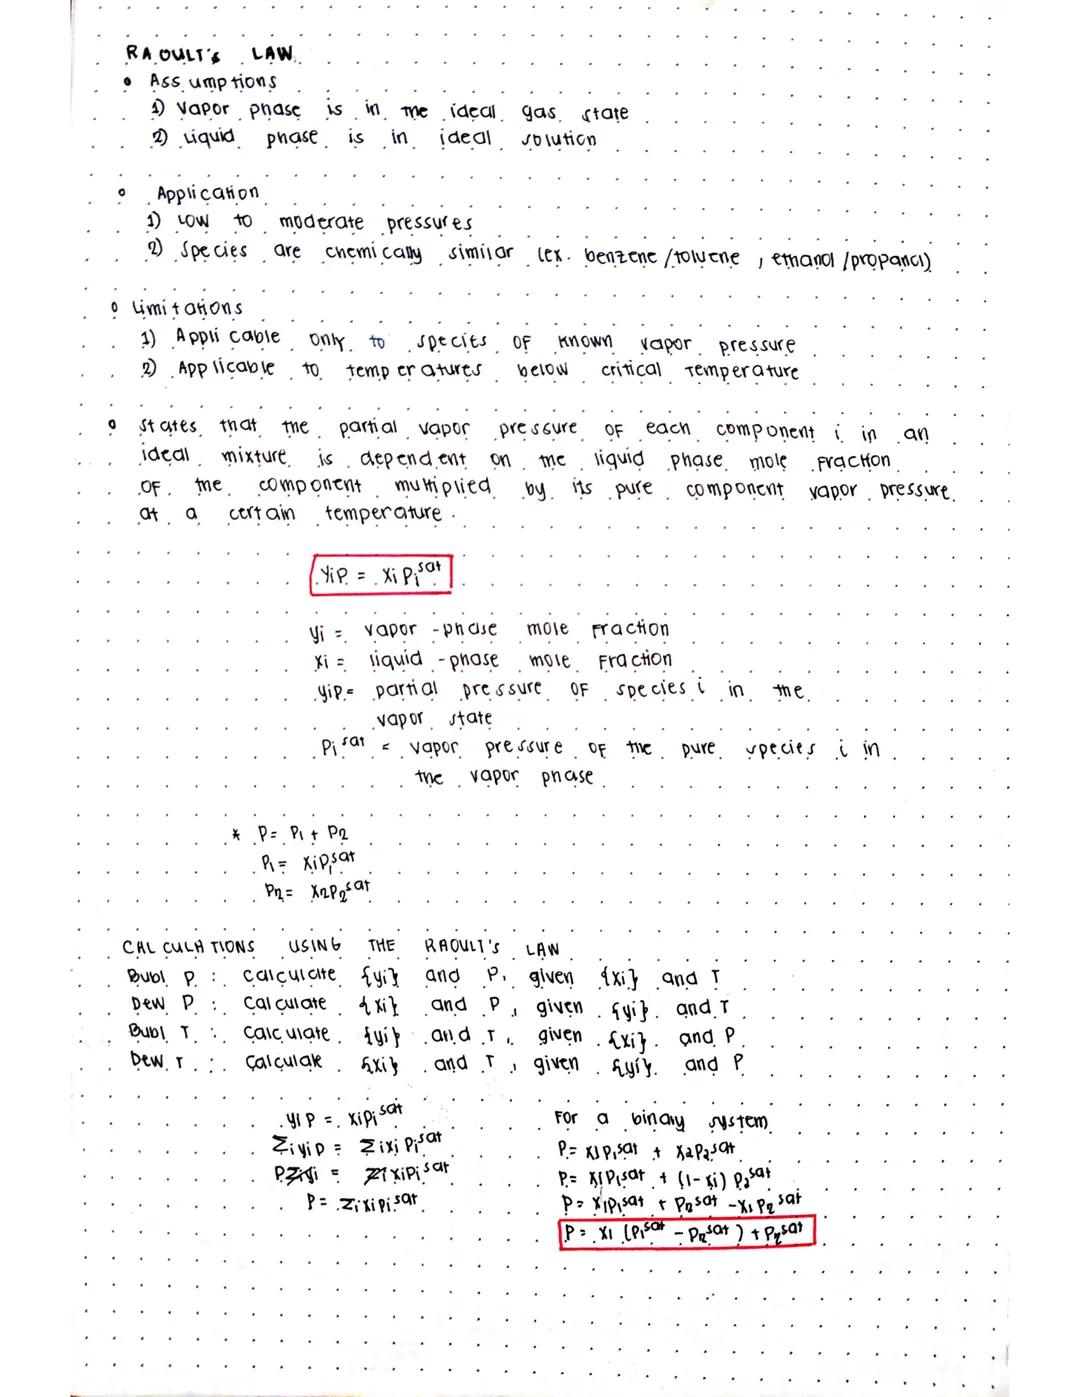 RAOULT'S LAW
• Assumptions
1) Vapor phase is in the ideal gas state
2) Liquid phase is in ideal solution
• Application
1) Low to moderate pressures
2) Species are chemically similar (ex. benzene/toluene, ethanol/propanol)
• Limitations
1) Applicable only to species of known vapor pressure
2) Applicable to temperatures below critical temperature
• States that the partial vapor pressure of each component i in an
ideal mixture is dependent on the liquid phase mole fraction
of the component multiplied by its pure component vapor pressure
at a certain temperature.
yiP = xiPi^sat
yi = vapor-phase mole fraction
xi = liquid-phase mole fraction
yiP = partial pressure of species i in the
vapor state
Pi^sat = vapor pressure of the pure species i in
the vapor phase
* P = P1 + P2
P1 = xiP1^sat
P2 = x2P2^sat
CALCULATIONS USING THE RAOULT'S LAW
Bubl P: Calculate {yi} and P, given {xi} and T
Dew P: Calculate {xi} and P, given {yi} and T
Bubl T: Calculate {yi} and T, given {xi} and P
Dew T: Calculate {xi} and T, given {yi} and P
yiP = xiPi^sat
ΣiyiP = Σixi Pi^sat
PΣiyi = ΣixiPi^sat
P = ΣixiPi^sat
For a binary system
P = x1P1^sat + x2P2^sat
P = x1P1^sat + (1-xi) P2^sat
P = x1P1^sat + P2^sat - x1P2^sat
P = x1 (P1^sat - P2^sat) + P2^sat